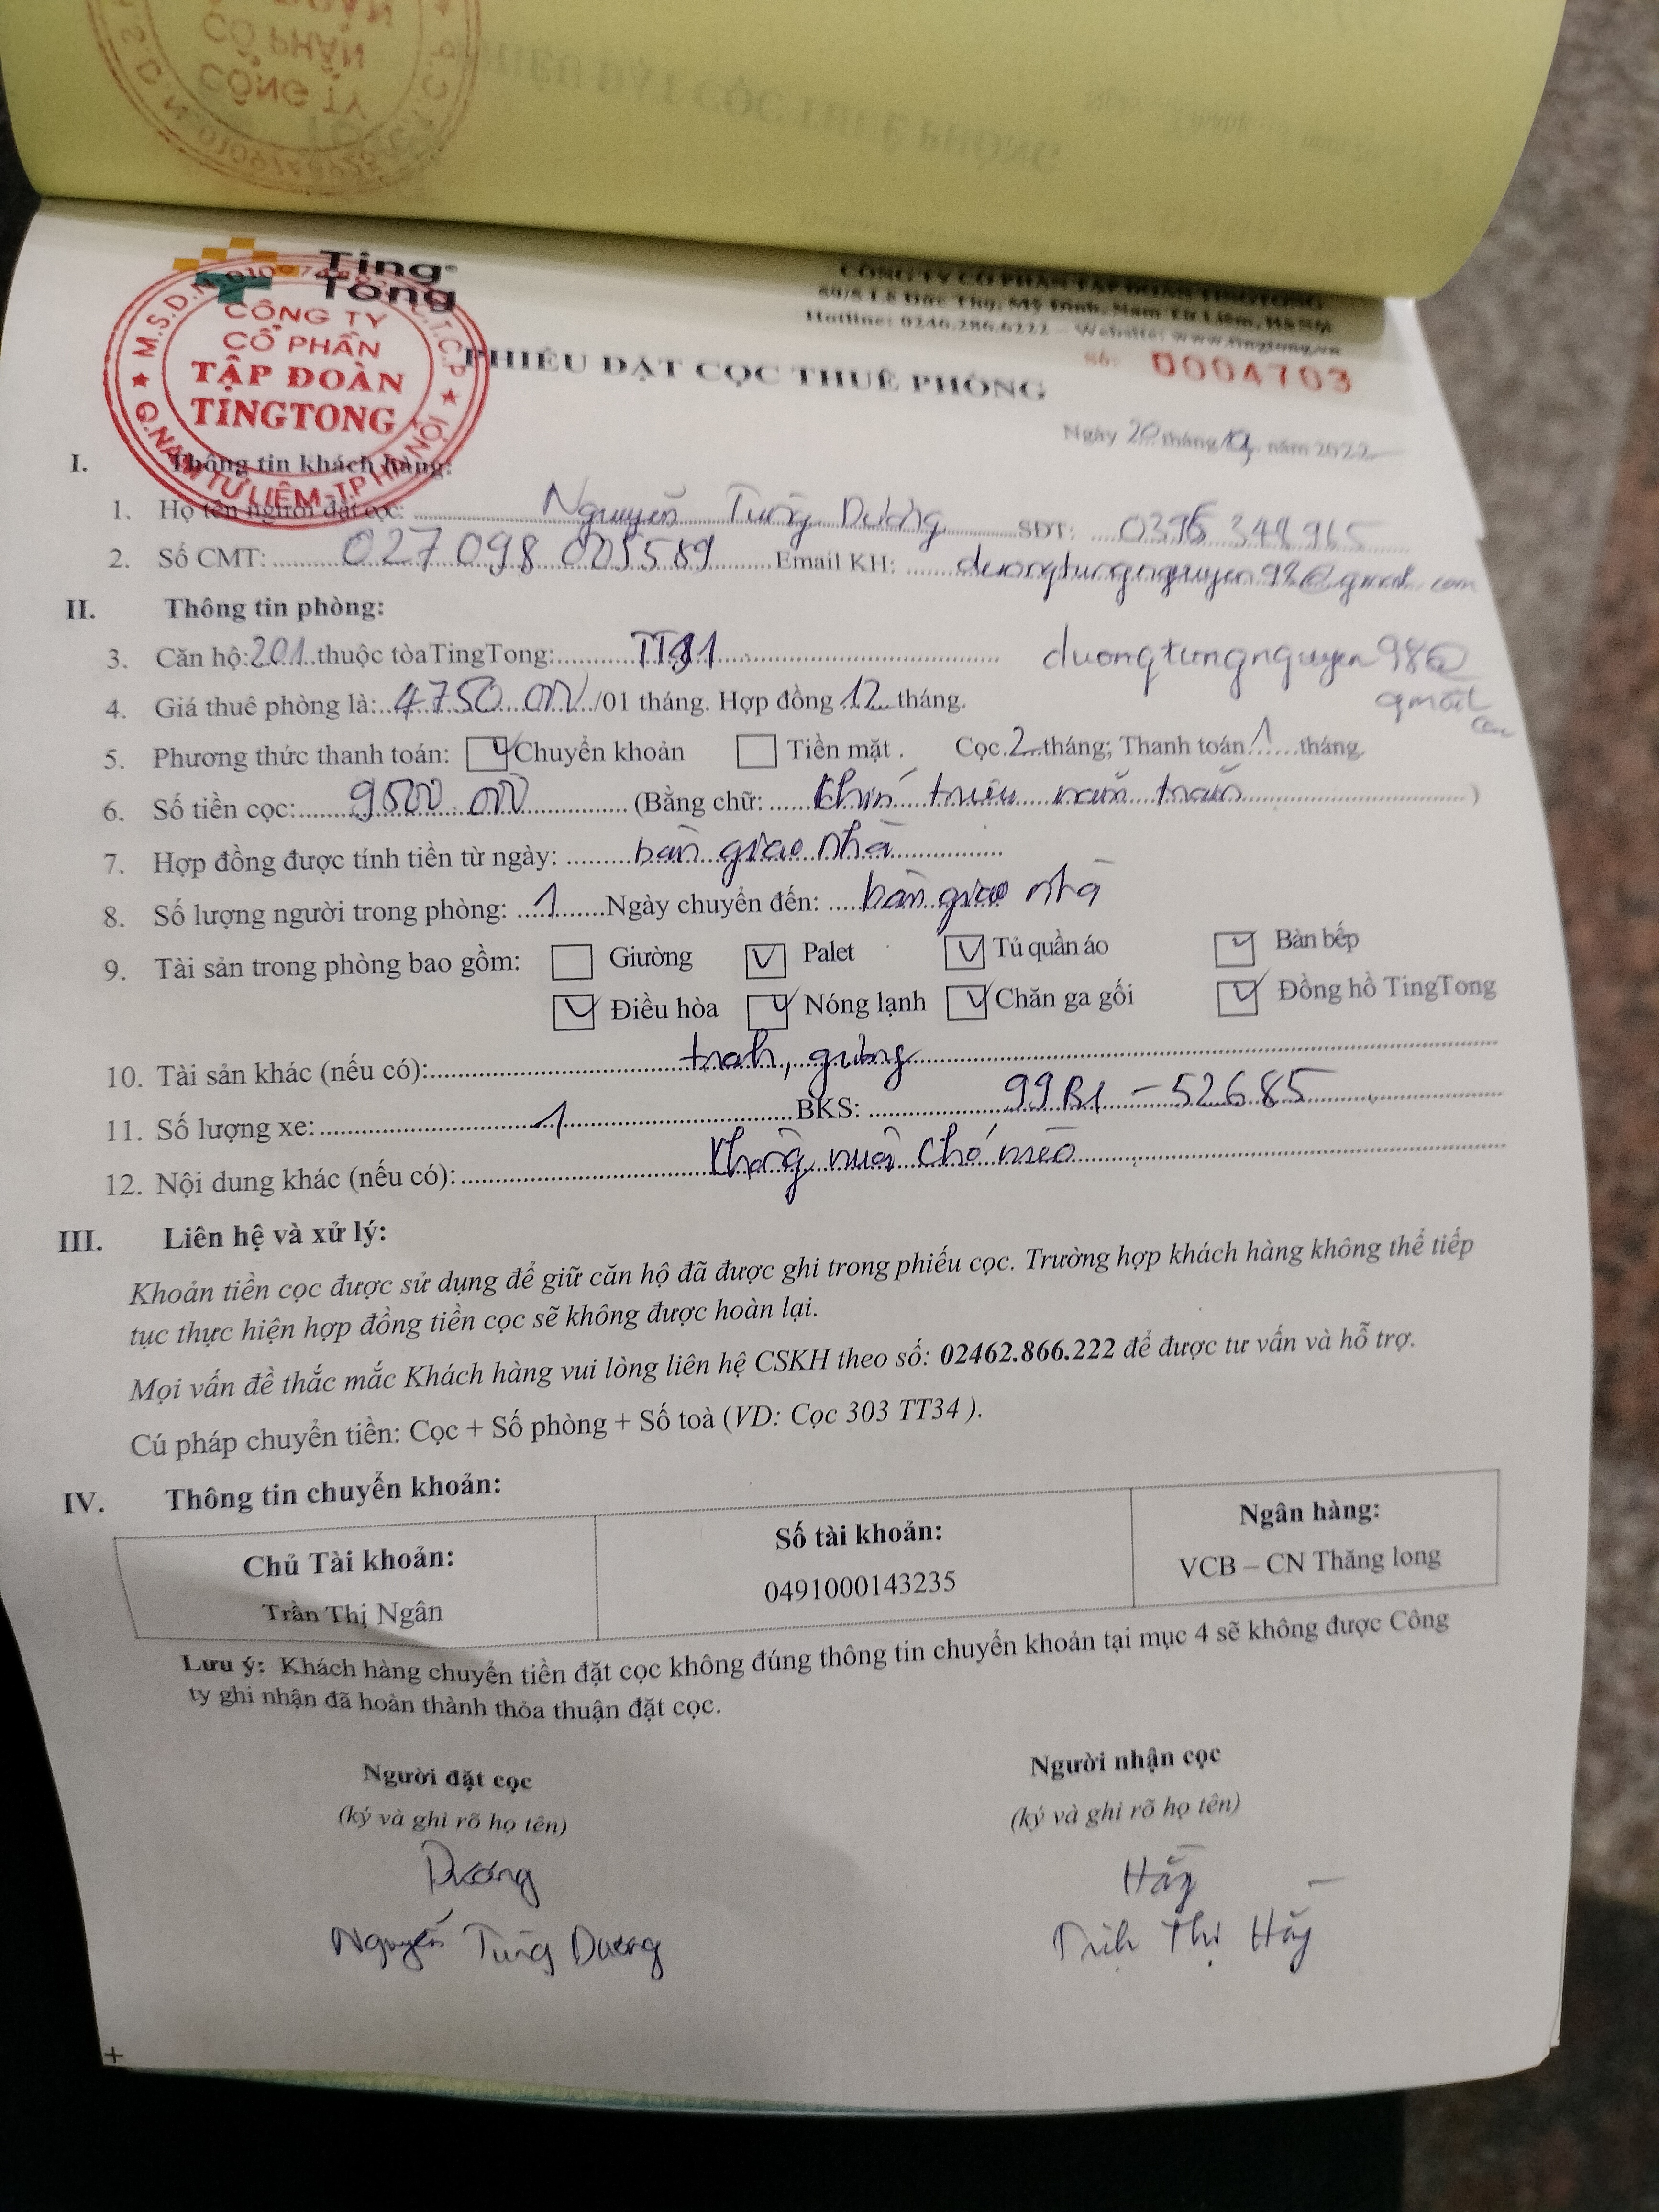 Ting
Tong
CÔNG TY CỔ PHẦN TẬP ĐOÀN TINGTONG
59/6 Lê Đức Thọ, Mỹ Đình, Nam Từ Liêm, HNM
Hotline: 0246.286.6222 – Website: www.tingtong.vn
CÔNG TY
CỔ PHẦN
TẬP ĐOÀN
TINGTONG
Q.NAM TỪ LIÊM-T.P HÀ NỘI
PHIẾU ĐẶT CỌC THUÊ PHÒNG
Số: 0004703
Ngày 20 tháng năm 2022
I. Thông tin khách hàng:
1. Họ tên người đặt cọc: Nguyễn Tùng Dương SĐT: 0396 348 965
2. Số CMT: 027 098 005589 Email KH: duongtungnguyen98@gmail.com
II. Thông tin phòng:
3. Căn hộ: 201 thuộc tòaTingTong: TT81 duongtungnguyen98@
gmail
com
4. Giá thuê phòng là: 4750.000/01 tháng. Hợp đồng 12 tháng.
5. Phương thức thanh toán: Chuyển khoản Tiền mặt . Cọc 2 tháng; Thanh toán 1 tháng.
6. Số tiền cọc: 9500.000 (Bằng chữ: Chín triệu năm trăm )
7. Hợp đồng được tính tiền từ ngày: bàn giao nhà
8. Số lượng người trong phòng: 1 Ngày chuyển đến: bàn giao nhà
9. Tài sản trong phòng bao gồm: Giường Palet Tủ quần áo Bàn bếp
Điều hòa Nóng lạnh Chăn ga gối Đồng hồ TingTong
10. Tài sản khác (nếu có): tranh, gương
11. Số lượng xe: 1 BKS: 99B1 – 52685
12. Nội dung khác (nếu có): Không nuôi chó mèo
III. Liên hệ và xử lý:
Khoản tiền cọc được sử dụng để giữ căn hộ đã được ghi trong phiếu cọc. Trường hợp khách hàng không thể tiếp
tục thực hiện hợp đồng tiền cọc sẽ không được hoàn lại.
Mọi vấn đề thắc mắc Khách hàng vui lòng liên hệ CSKH theo số: 02462.866.222 để được tư vấn và hỗ trợ.
Cú pháp chuyển tiền: Cọc + Số phòng + Số toà (VD: Cọc 303 TT34 ).
IV. Thông tin chuyển khoản:
Chủ Tài khoản: Số tài khoản: Ngân hàng:
Trần Thị Ngân 0491000143235 VCB – CN Thăng long
Lưu ý: Khách hàng chuyển tiền đặt cọc không đúng thông tin chuyển khoản tại mục 4 sẽ không được Công
ty ghi nhận đã hoàn thành thỏa thuận đặt cọc.
Người đặt cọc Người nhận cọc
(ký và ghi rõ họ tên) (ký và ghi rõ họ tên)
Dương Hằng
Nguyễn Tùng Dương Trịnh Thị Hằng